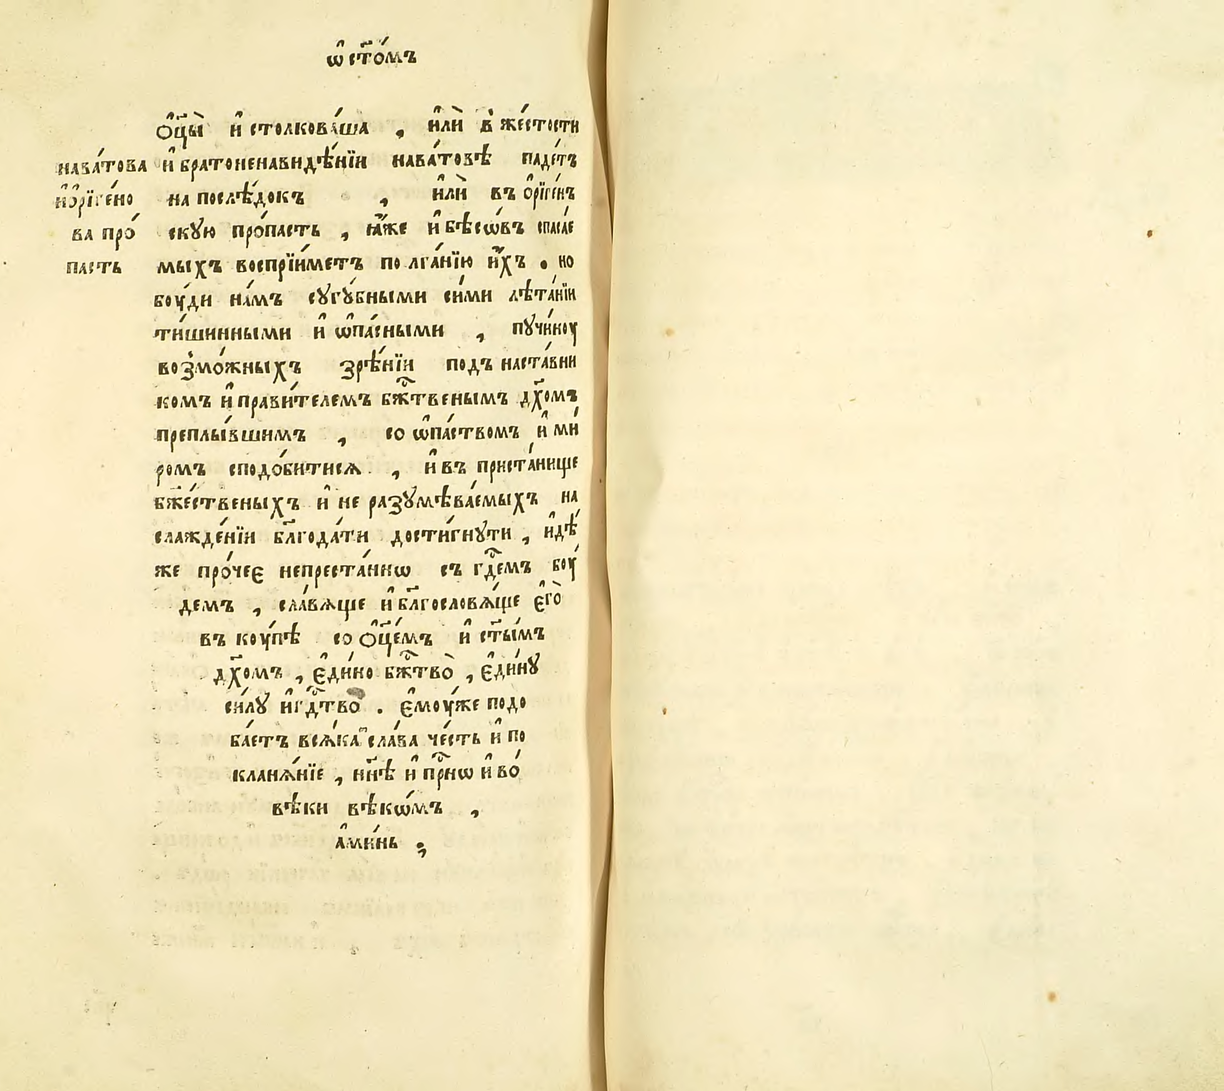 ѡ҆ ст҃о́мъ
ѻ҆ц҃ы̀ и҆ столкова́ша , и҆лѝ в̾ же́стости
нава́това и҆ братоненавидѣ́нїи нава́товѣ паде́тъ
и҆ ѻ҆риге́но на послѣ́докъ , и҆лѝ въ ѻ҆риге́нъ
ва про́ скꙋю про́пасть , ꙗ҆́же и҆ бѣсѡ́въ спаса́е
пасть мыхъ воспрїи́метъ по лга́нїю и҆́хъ . но
боу́ди на́мъ сꙋгꙋ́быми си́ми лѣта́нїи
тиши́нными и҆ ѡ҆па́сными , пꙋчи́ноу
возмо́жныхъ зрѣ́нїи подъ наста́вни
комъ и҆ прави́телемъ бж҃твенымъ дх҃омъ
преплы́вшимъ , со ѡ҆па́ствомъ и҆ ми́
ромъ сподо́битисѧ , и҆ въ приста́нище
бж҃е́ственыхъ и҆ не разꙋмѣва́емыхъ на
слажде́нїи бл҃года́ти дости́гнꙋти , и҆дѣ́
же про́чеє непреста́ннѡ съ гд҃емъ боу́
демъ , сла́вѧще и҆ бл҃гословѧ́ще є҆го̀
въ коу́пѣ со ѻ҆ц҃е́мъ и҆ ст҃ы́мъ
дх҃омъ , є҆ди́но бж҃тво̀ , є҆ди́нꙋ
си́лꙋ и҆ гд҃тво̀ . є҆моу́же подо
ба́етъ всѧ́ка сла́ва че́сть и҆ по
кланѧ́нїе , нн҃ѣ и҆ пр҃нѡ и҆ во́
вѣ́ки вѣкѡ́мъ ,
а҆ми́нь .,